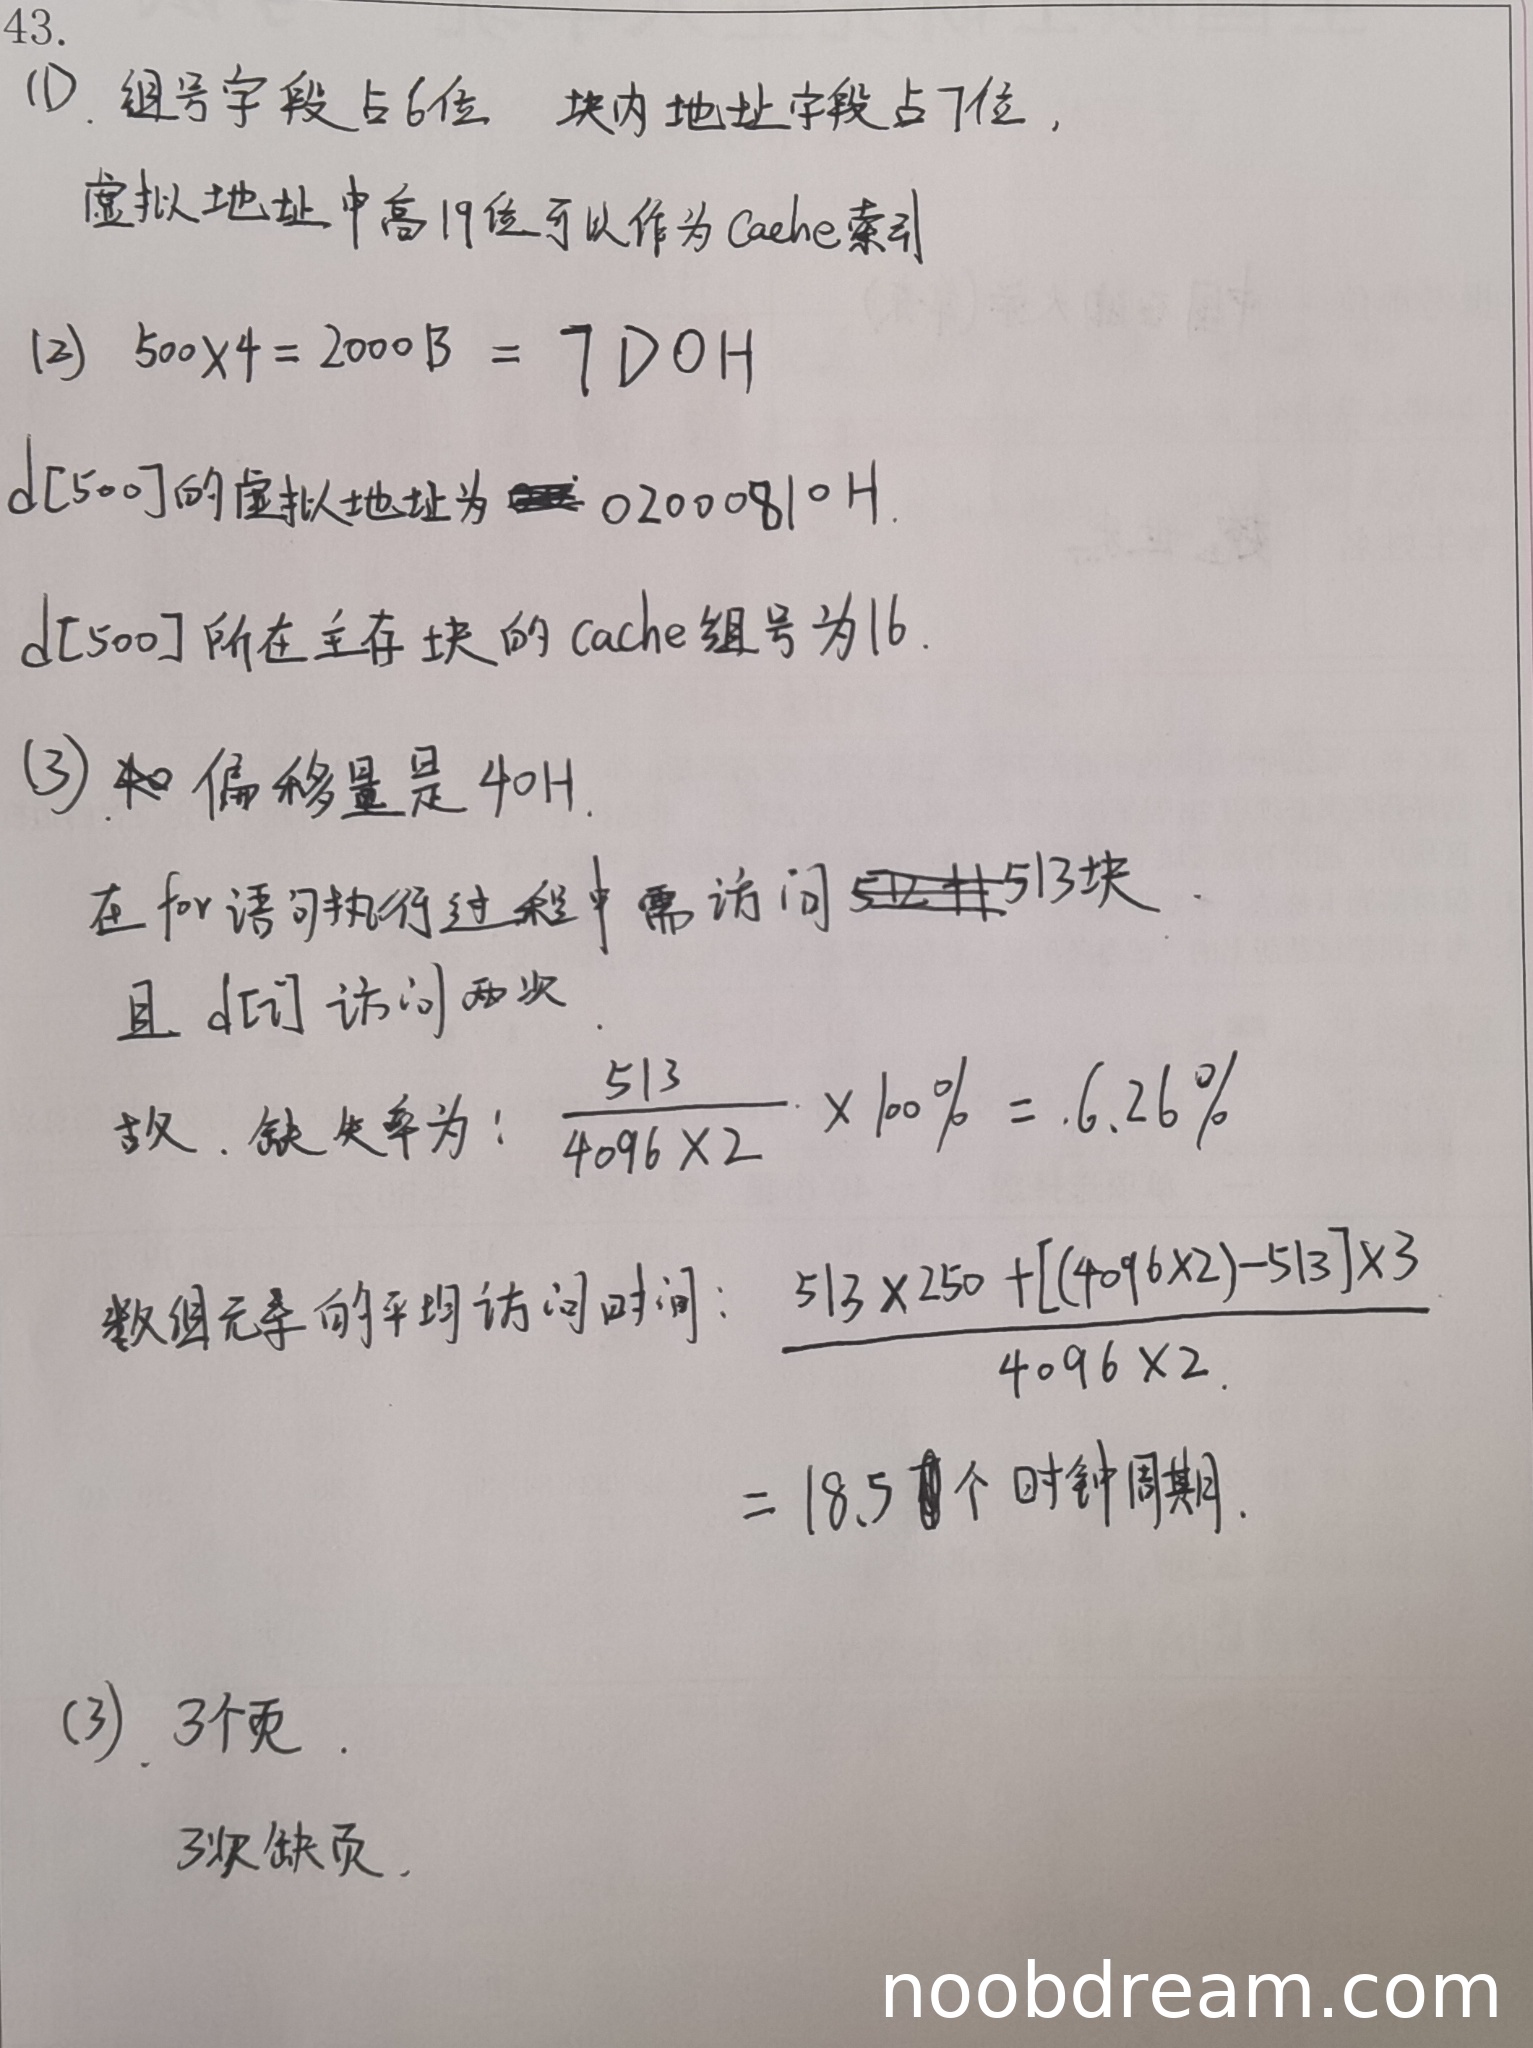 43.
(1). 组号字段占6位 块内地址字段占7位,
虚拟地址中高19位可以作为Cache索引
(2) 500×4=2000B = 7D0H
d[500]的虚拟地址为 02000810H.
d[500]所在主存块的cache组号为16.
(3). 偏移量是40H.
在for语句执行过程中需访问 513块.
且d[i]访问两次.
故.缺失率为: 513/(4096×2) ×100% = 6.26%
数组元素的平均访问时间: (513×250+[(4096×2)-513]×3)/(4096×2).
= 18.5个时钟周期.
(3). 3个页.
3次缺页.
noobdream.com